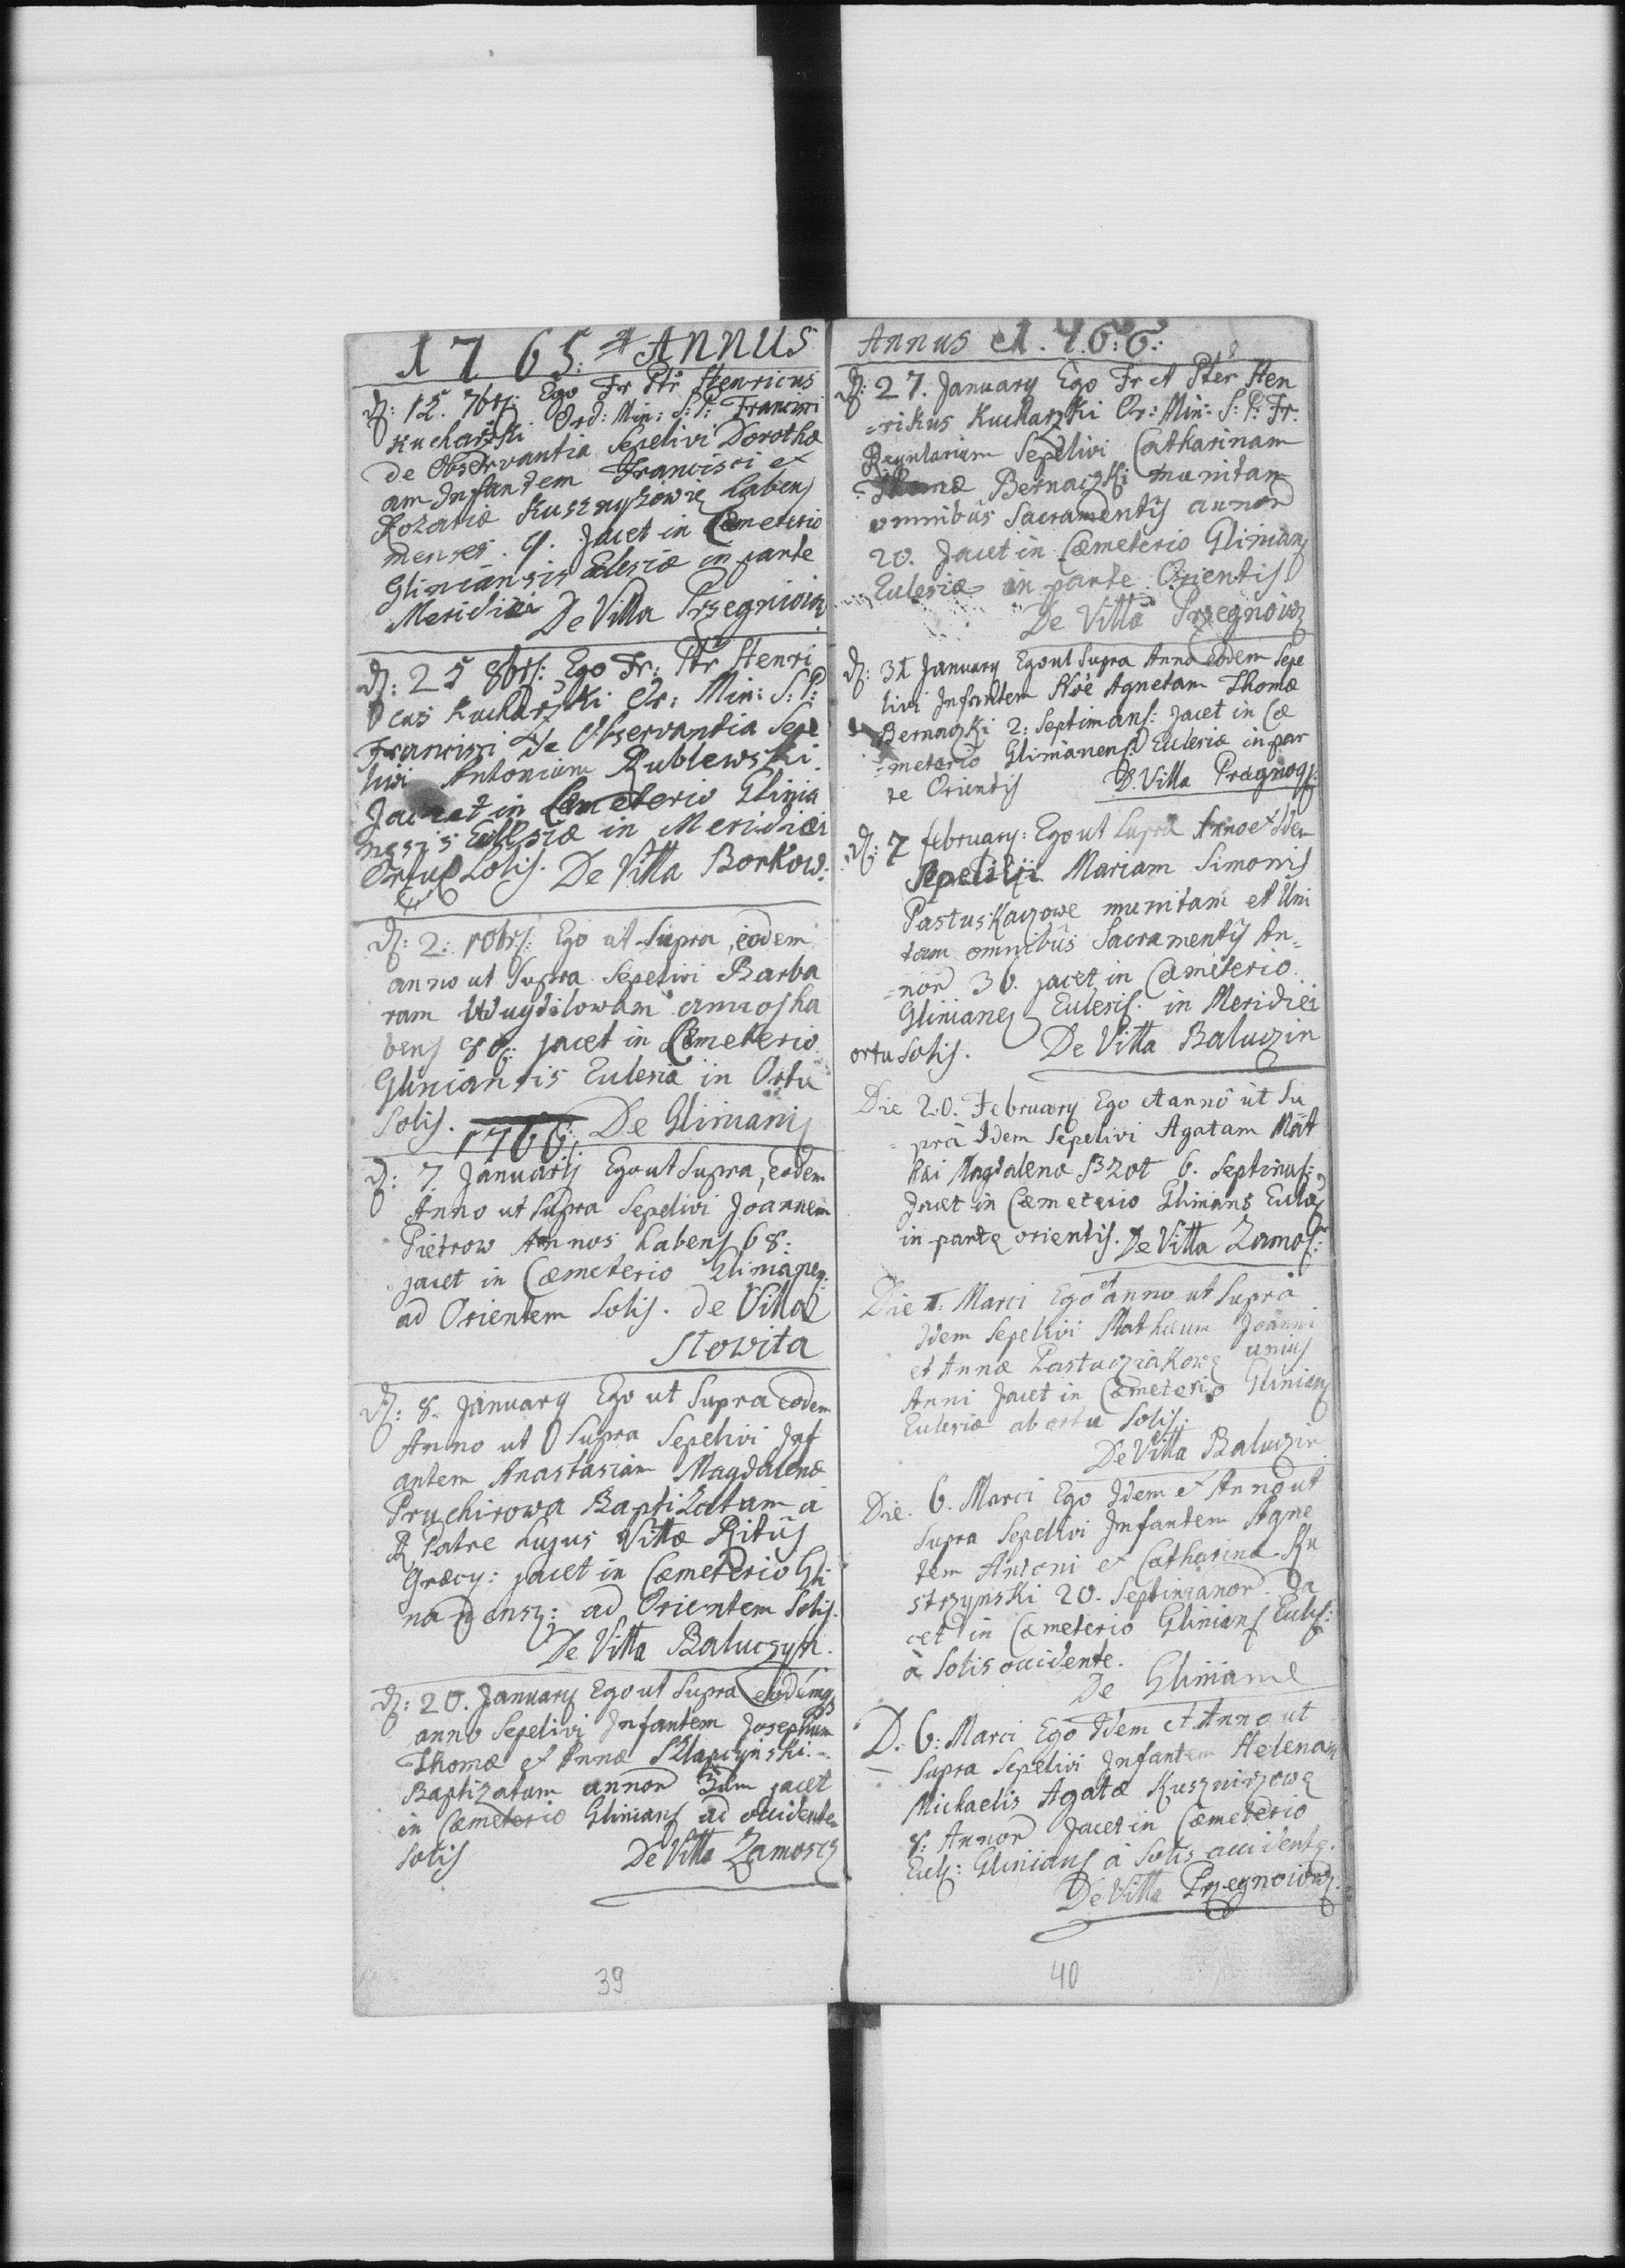 1765. ANNUS
D: 15. 7brs: Ego Fr Ptr Henricus
Kucharski Ord: Min: S: P: Francisci
de Observantia Sepelivi Dorothe
am Infantem Francisci et
Rozaliæ Kusznyrzowie habens
menses. 9. Jacet in Cæmeterio
Gliniansis Eclesiæ in parte
Meridiei De Villa Przegnioio
D: 25 8brs: Ego Fr: Ptr Henri
cus Kucharzki Or: Min: S: P:
Francisci De Observantia Sepe
livi Antonium Rublewski.
Jacet in Cæmeterio Glinia
nesis Eclesiæ in Meridiæi
Ortus Solis. De Villa Borkow:
D: 2: 10brs: Ego ut Supra, eodem
anno ut Supra Sepelivi Barba
ram annos ha
bens 80: jacet in Cæmeterio
Gliniansis Eulesia in Ortu
Solis. De Glinianis
1766:
D: 7. Januarij Ego ut Supra, eodem
Anno ut Supra Sepelivi Joannem
Pietrow Annos habens 68:
jacet in Cæmeterio Glinanen:
ad Orientem Solis. de Villa
Slowita
D: 8. January Ego ut Supra eodem
Anno ut Supra Sepelivi Inf
antem Anastasiam Magdalenæ
Prychirowa Baptizatam a
R Patre hujus Villæ Ritus
Græcy: jacet in Cæmeterio Gli
nanensz: ad Orientem Solis.
De Villa Baluczyn.
D: 20. January Ego ut Supra eodemq
anno Sepelivi Infantem Josephum
Thomæ et Annæ
Baptizatum annor 3um jacet
in Cæmeterio Glinians ad occidente
Solis De Villa Zamoscz
39
Annus 1.7.6:6:
D: 27. January Ego Fr et Pter Hen
=rikus Kucharzki Or: Min: S: P: Fr.
Regularium Sepelivi Catharinam
Thomæ Bernaczki munitam
omnibus Sacramentis annor
20. Jacet in Cæmeterio Glinians
Eulesiæ in parte Orientis
De Villa Przegnoiow
D: 31 January Ego ut Supra Anno eodem Sepe
livi Infantem Noe Agnetam Thomæ
Bernaczki 2: Septimans: jacet in Cæ
=meterio Glinianens: Eulesiæ in par
te Orientis D. Villa Pragnog:
D: 7 february: Ego ut Supra Anno et Idem
Sepelivi Mariam Simonis
Pastuszkaczowe munitam et Uni
tam omnibus Sacramentis An=
=nor 36. jacet in Cæmeterio
Glinianes Eulesis. in Meridiei
ortu Solis. De Villa Baluczin
Die 20. February Ego et anno ut Su
pra Idem Sepelivi Agatam Mat
hæi Magdalenæ Bzot 6. Septimas:
Jacet in Cæmeterio Glinians Eulæs
in parte orientis. De Villa Zamos:
Die 1. Marci Ego et anno ut Supra
Idem Sepelivi Mathæum Joanni
et Annæ Pastuczakowe unius
Anni Jacet in Cæmeterio Glinians
Eulesiæ ab ortu Solis:
De Villa Baluczin
Die. 6. Marci Ego Idem et Anno ut
Supra Sepelivi Infantem Agne
tem Antoni et Catharina Ku
strzynski 20. Septimanor. Ja
cet in Cæmeterio Glinians Eules:
a Solis occidente.
De Gliniane
D: 6: Marci Ego Idem et Anno ut
Supra Sepelivi Infantem Helenam
Michaelis Agatæ Kusznirzowe
8: Annor Jacet in Cæmeterio
Euls: Glinians a Solis occidente.
De Villa Przegnoiow
40